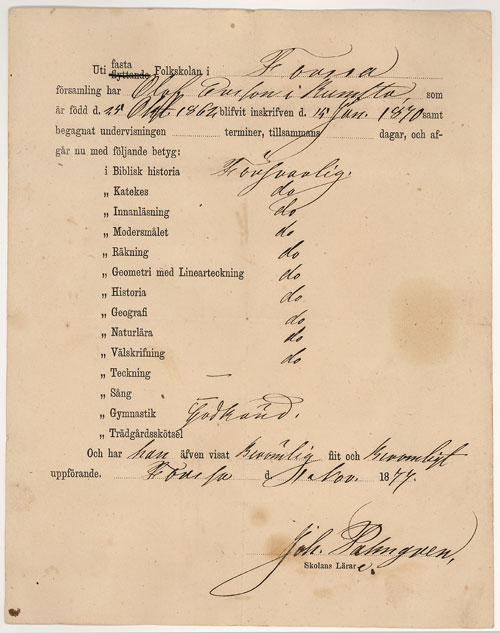 Uti fasta flyttande Folkskolan i Forssa
församling har Olof Persson i Kumsta som
är född d. 25 Okt. 1862 blifvit inskrifven d. 15 Jan. 1870 samt
begagnat undervisningen terminer, tillsammans dagar, och af-
går nu med följande betyg:
i Biblisk historia Försvarlig.
„ Katekes do
„ Innanläsning do
„ Modersmålet do
„ Räkning do
„ Geometri med Linearteckning do
„ Historia do
„ Geografi do
„ Naturlära do
„ Välskrifning do
„ Teckning —
„ Sång
„ Gymnastik Godkänd.
„ Trädgårdsskötsel
Och har han äfven visat berömlig flit och berömligt
uppförande. Forssa d. 1 Nov. 1877.
Joh. Palmgren,
Skolans Lärare.